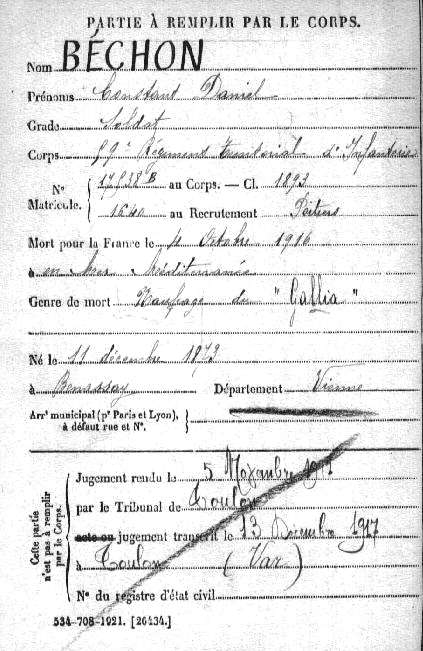 PARTIE À REMPLIR PAR LE CORPS.
Nom BÉCHON
Prénoms Constant Daniel
Grade Soldat
Corps 89e Régiment territorial d'Infanterie
N° Matricule. 17938 B au Corps. — Cl. 1893
1640 au Recrutement Poitiers
Mort pour la France le 4 Octobre 1916
à en Mer Méditerranée
Genre de mort Naufrage du "Gallia"
Né le 11 décembre 1873
à Benassay Département Vienne
Arrt municipal (pr Paris et Lyon),
à défaut rue et N°.
Cette partie n'est pas à remplir par le Corps.
Jugement rendu le 5 Novembre 1917
par le Tribunal de Toulon
acte ou jugement transcrit le 13 Décembre 1917
à Toulon (Var)
N° du registre d'état civil
534-708-1921. [26434.]